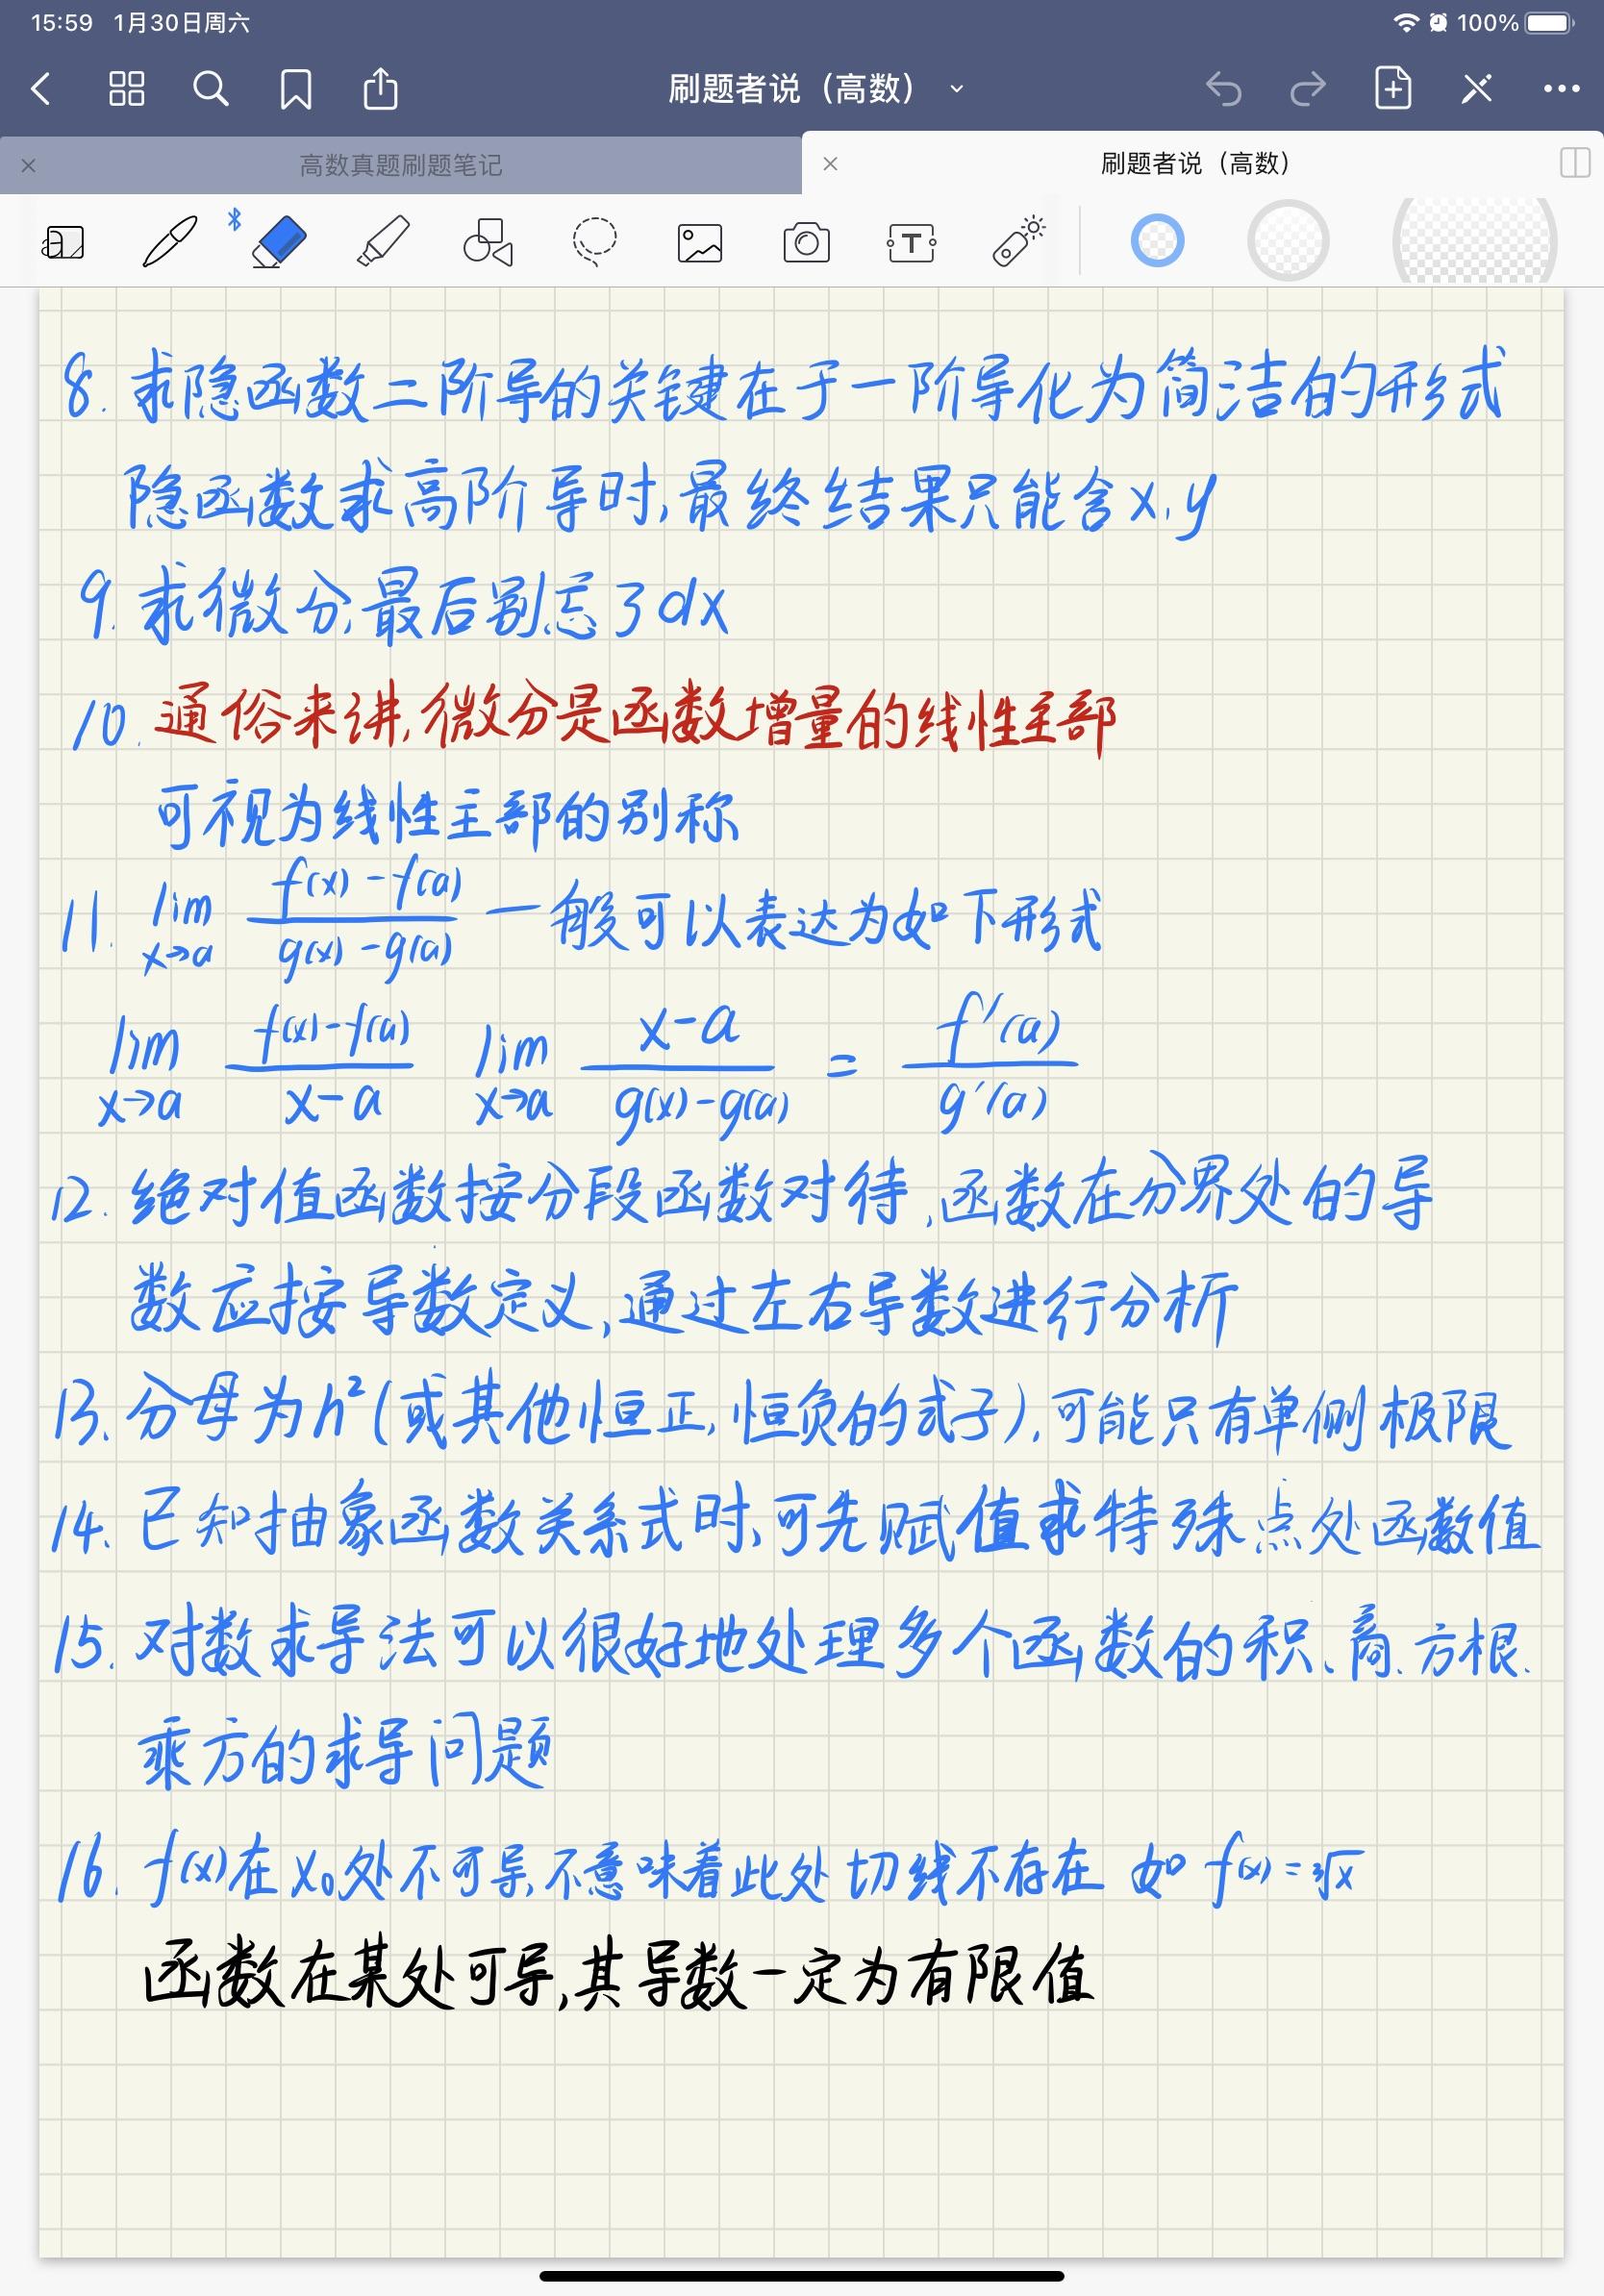 15:59 1月30日周六
100%
刷题者说（高数）
高数真题刷题笔记
刷题者说（高数）
8. 求隐函数二阶导的关键在于一阶导化为简洁的形式
隐函数求高阶导时,最终结果只能含x,y
9. 求微分,最后别忘了dx
10. 通俗来讲,微分是函数增量的线性主部
可视为线性主部的别称
11. lim x→a (f(x)-f(a))/(g(x)-g(a)) 一般可以表达为如下形式
lim x→a (f(x)-f(a))/(x-a) lim x→a (x-a)/(g(x)-g(a)) = f'(a)/g'(a)
12. 绝对值函数按分段函数对待,函数在分界处的导
数应按导数定义,通过左右导数进行分析
13. 分母为h²(或其他恒正,恒负的式子),可能只有单侧极限
14. 已知抽象函数关系式时,可先赋值求特殊点处函数值
15. 对数求导法可以很好地处理多个函数的积、商、方根、
乘方的求导问题
16. f(x)在x₀处不可导,不意味着此处切线不存在 如f(x)=∛x
函数在某处可导,其导数一定为有限值